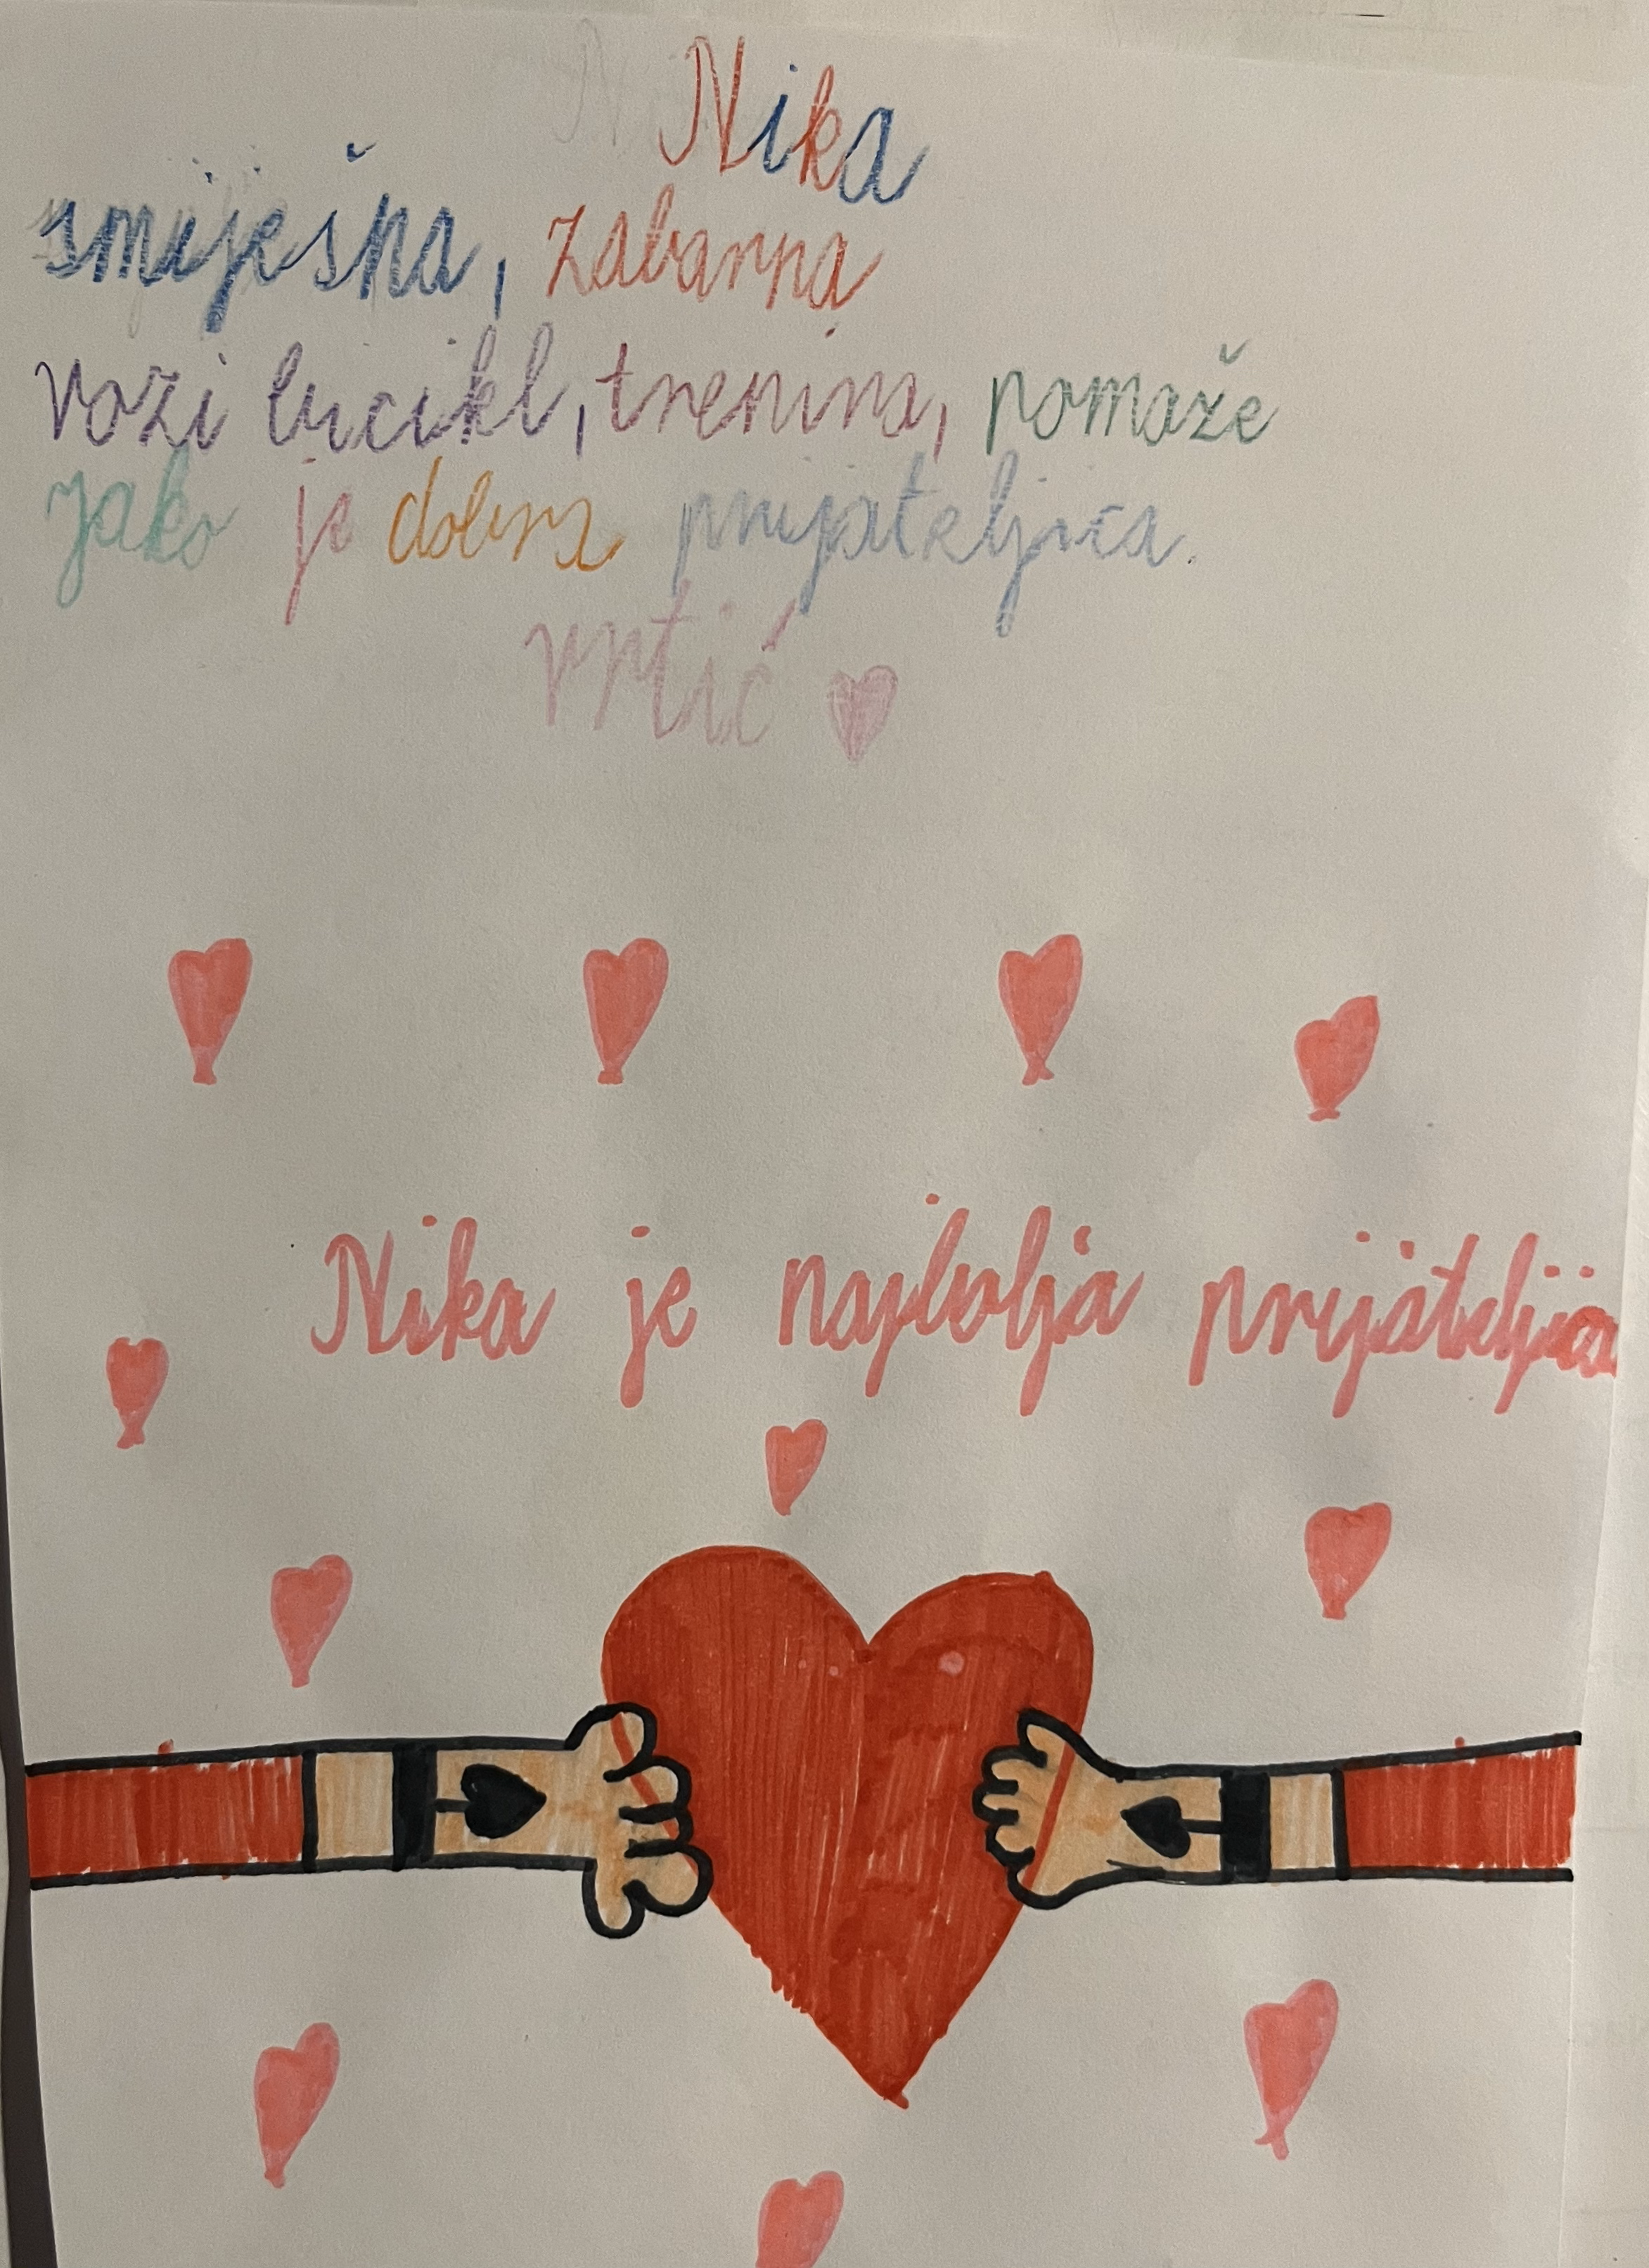 Nika
smiješna, zabavna
vozi bicikl, trenira, pomaže
jako je dobra prijateljica.
vrtić
Nika je najbolja prijateljica